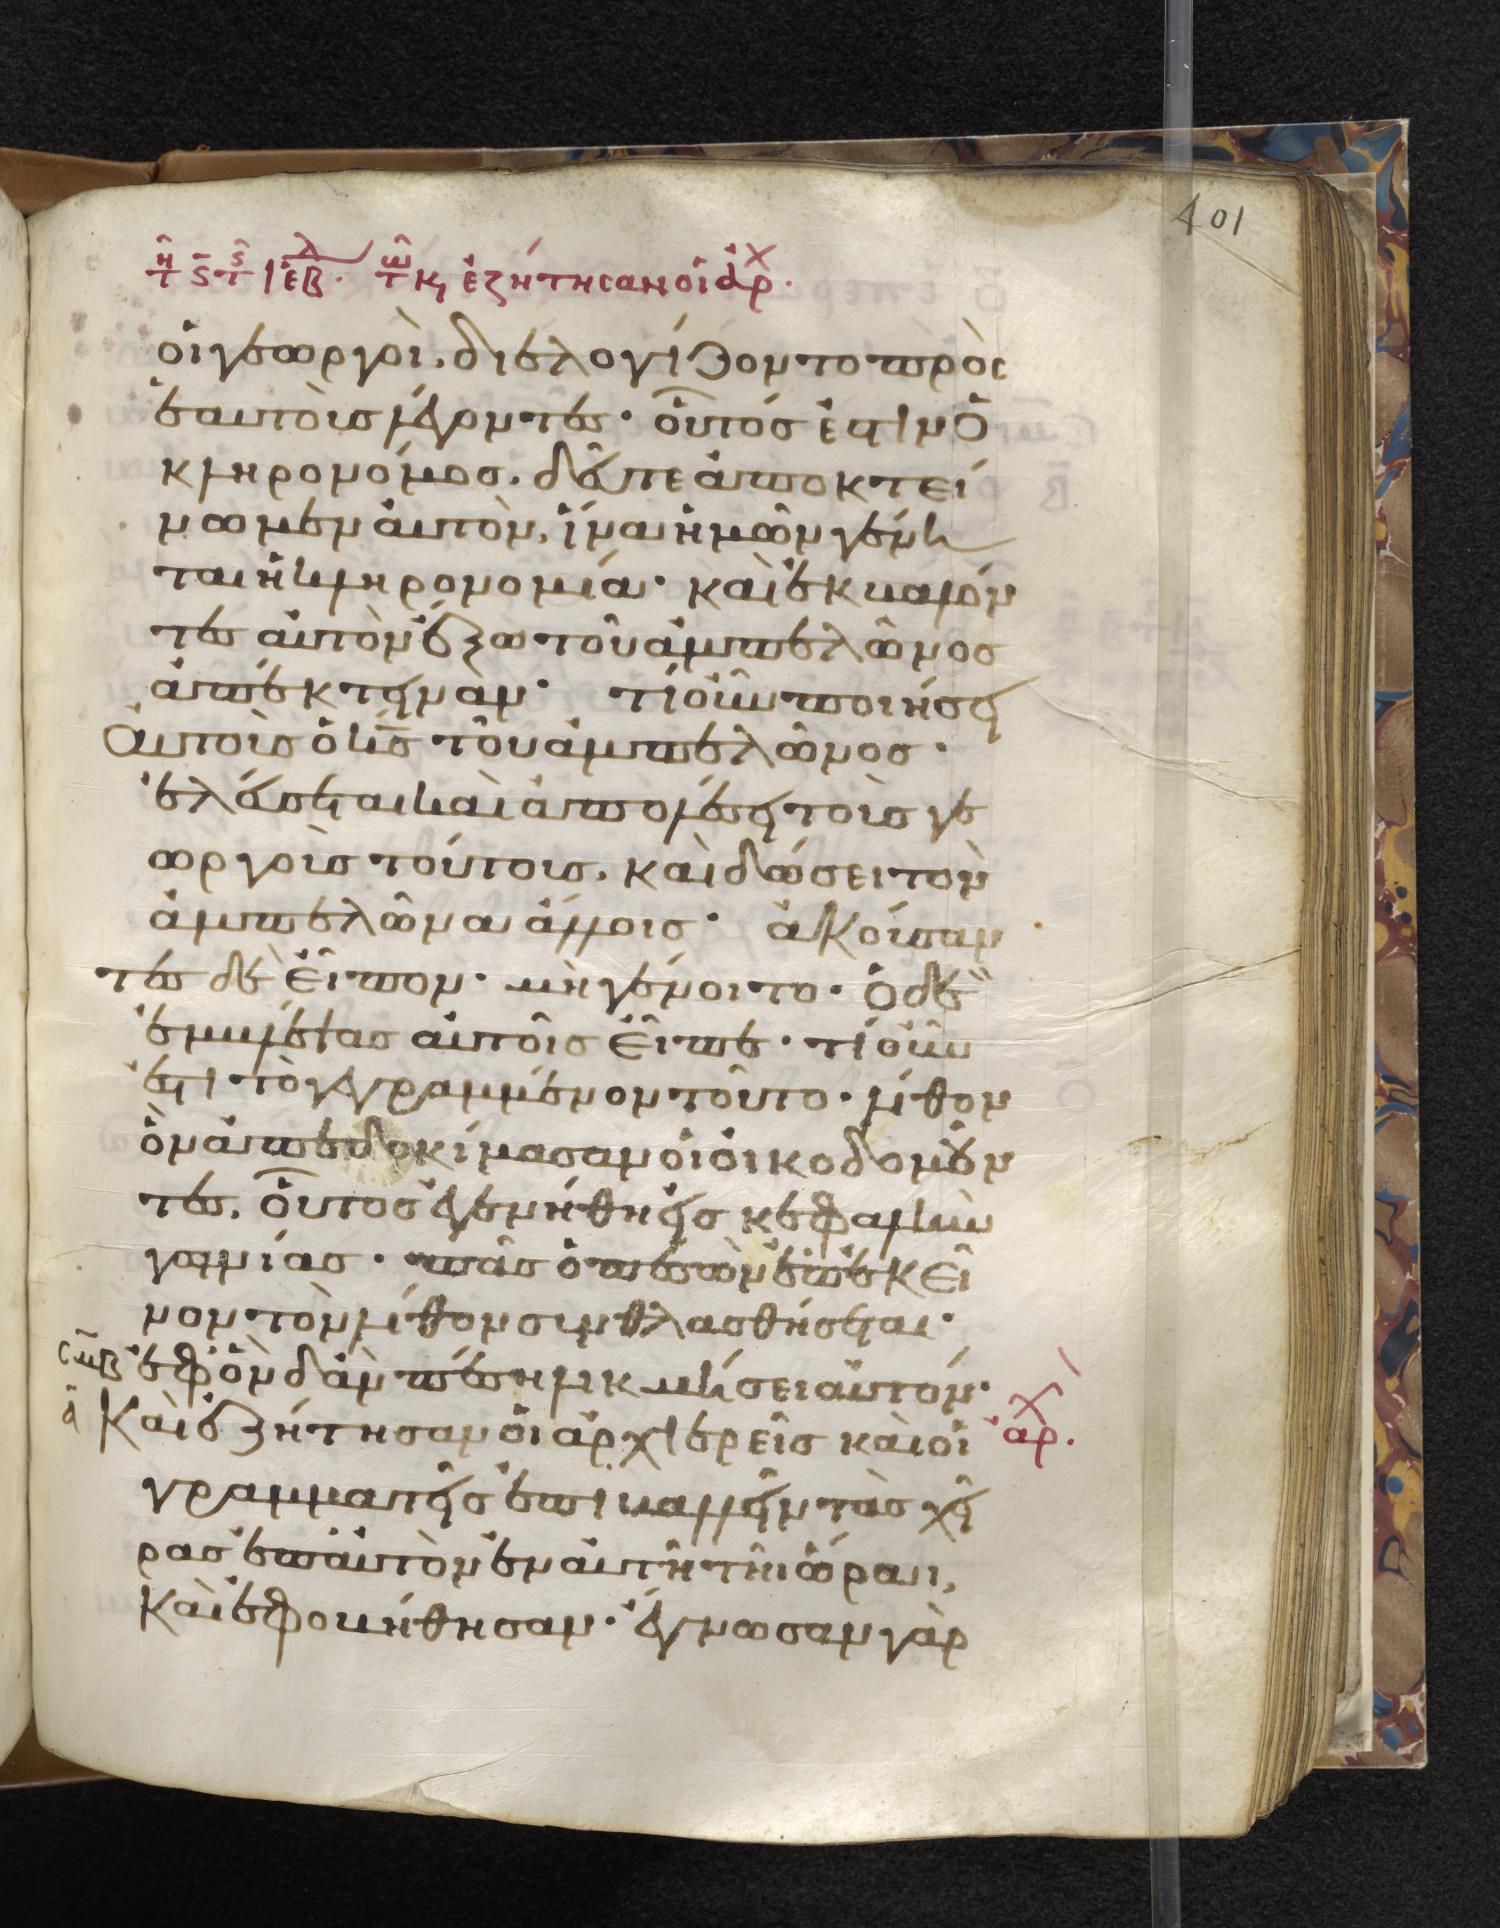 401
τῇ ϛ τῆς ιβ ἑβ. τῷ κ, ἐζήτησαν οἱ ἀρχ.
οἱ γεωργοὶ, διελογίζοντο πρὸς
ἑαυτοὺς λέγοντες· οὗτός ἐστιν ὁ
κληρονόμος. δεῦτε ἀποκτεί
νωμεν αὐτὸν, ἵνα ἡμῶν γένη
ται ἡ κληρονομία· καὶ ἐκβαλόν
τες αὐτὸν ἔξω τοῦ ἀμπελῶνος
ἀπέκτειναν· τί οὖν ποιήσει
αὐτοῖς ὁ κς τοῦ ἀμπελῶνος·
ἐλεύσεται καὶ ἀπολέσει τοὺς γε
ωργοὺς τούτους, καὶ δώσει τὸν
ἀμπελῶνα ἄλλοις· ἀκούσαν
τες δὲ εἶπον· μὴ γένοιτο· ὁ δὲ
ἐμβλέψας αὐτοῖς εἶπε· τί οὖν
ἐστι τὸ γεγραμμένον τοῦτο· λίθον
ὃν ἀπεδοκίμασαν οἱ οἰκοδομοῦν
τες, οὗτος ἐγενήθη εἰς κεφαλὴν
γωνίας· πᾶς ὁ πεσὼν ἐπ' ἐκεῖ
νον τὸν λίθον συνθλασθήσεται·
ἐφ' ὃν δ' ἂν πέσῃ λικμήσει αὐτόν·
Καὶ ἐζήτησαν οἱ ἀρχιερεῖς καὶ οἱ
ἀρχ.
γραμματεῖς ἐπιβαλεῖν τὰς χεῖ
ρας ἐπ' αὐτὸν ἐν αὐτῇ τῇ ὥρᾳ,
καὶ ἐφοβήθησαν· ἔγνωσαν γὰρ